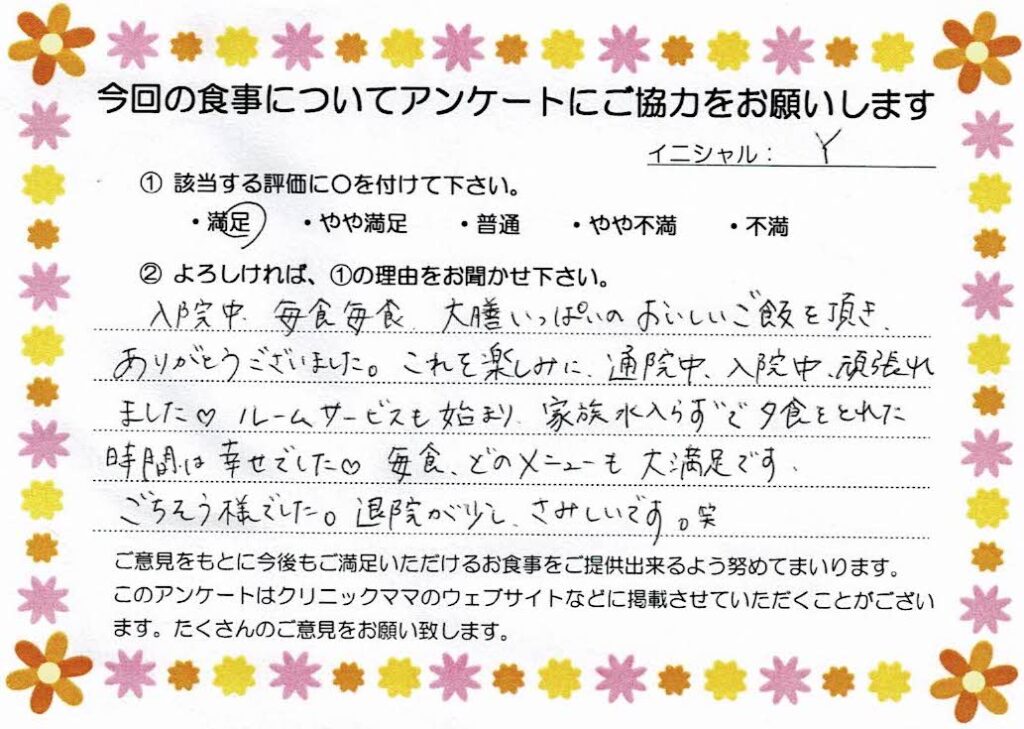 今回の食事についてアンケートにご協力をお願いします
イニシャル： Y
① 該当する評価に〇を付けて下さい。
・満足 ・やや満足 ・普通 ・やや不満 ・不満
② よろしければ、①の理由をお聞かせ下さい。
入院中、毎食毎食、大膳いっぱいのおいしいご飯を頂き、
ありがとうございました。これを楽しみに、通院中、入院中、頑張れ
ました♡ ルームサービスも始まり、家族水入らずで夕食をとれた
時間は幸せでした♡ 毎食、どのメニューも大満足です、
ごちそう様でした。退院が少し、さみしいです。笑
ご意見をもとに今後もご満足いただけるお食事をご提供出来るよう努めてまいります。
このアンケートはクリニックママのウェブサイトなどに掲載させていただくことがござい
ます。たくさんのご意見をお願い致します。